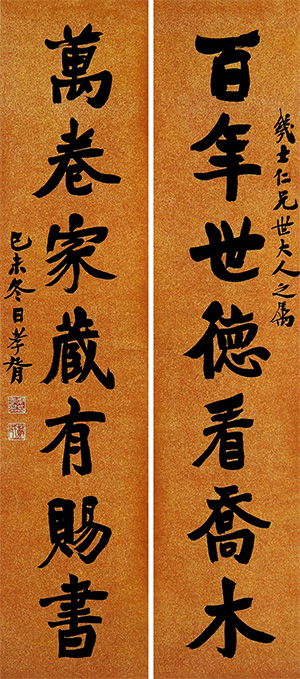 百年世德看喬木
義士仁兄世大人之屬
萬卷家藏有賜書
己未冬日孝胥